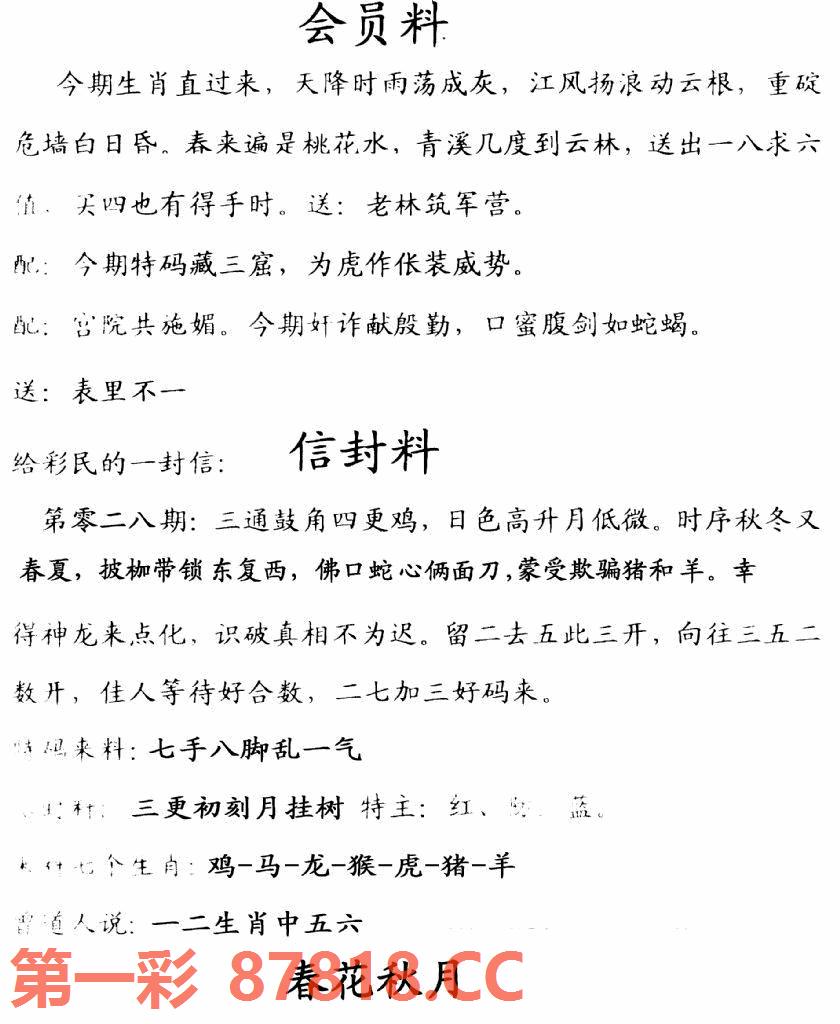 会员料
今期生肖直过来，天降时雨荡成灰，江风扬浪动云根，重碇
危墙白日昏。春来遍是桃花水，青溪几度到云林，送出一八求六
值，买四也有得手时。送：老林筑军营。
配：今期特码藏三窟，为虎作伥装威势。
配：宫院共施媚。今期奸诈献殷勤，口蜜腹剑如蛇蝎。
送：表里不一
信封料
给彩民的一封信：
第零二八期：三通鼓角四更鸡，日色高升月低微。时序秋冬又
春夏，披枷带锁东复西，佛口蛇心俩面刀,蒙受欺骗猪和羊。幸
得神龙来点化，识破真相不为迟。留二去五此三开，向往三五二
数开，佳人等待好合数，二七加三好码来。
特码来料：七手八脚乱一气
三更初刻月挂树 特主：红、蓝。
七个生肖：鸡-马-龙-猴-虎-猪-羊
曾道人说：一二生肖中五六
第一彩 87818.CC
春花秋月